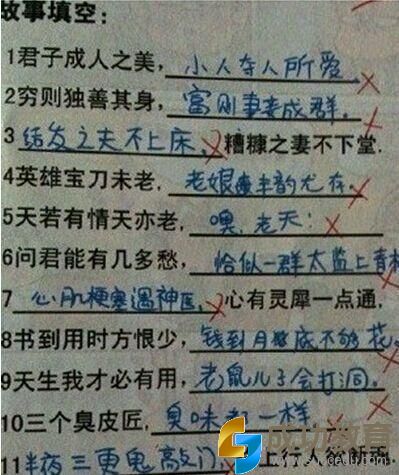 故事填空:
1君子成人之美,小人夺人所爱。
2穷则独善其身,富则妻妾成群。
3结发之夫不上床,糟糠之妻不下堂.
4英雄宝刀未老,老娘丰韵尤存。
5天若有情天亦老,噢,老天!
6问君能有几多愁,恰似一群太监上青楼
7心肌梗塞遇神医,心有灵犀一点通,
8书到用时方恨少,钱到月底不够花。
9天生我才必有用,老鼠儿子会打洞。
10三个臭皮匠,臭味都一样
11半夜三更鬼敲门,上行人欲断魂
成功教育